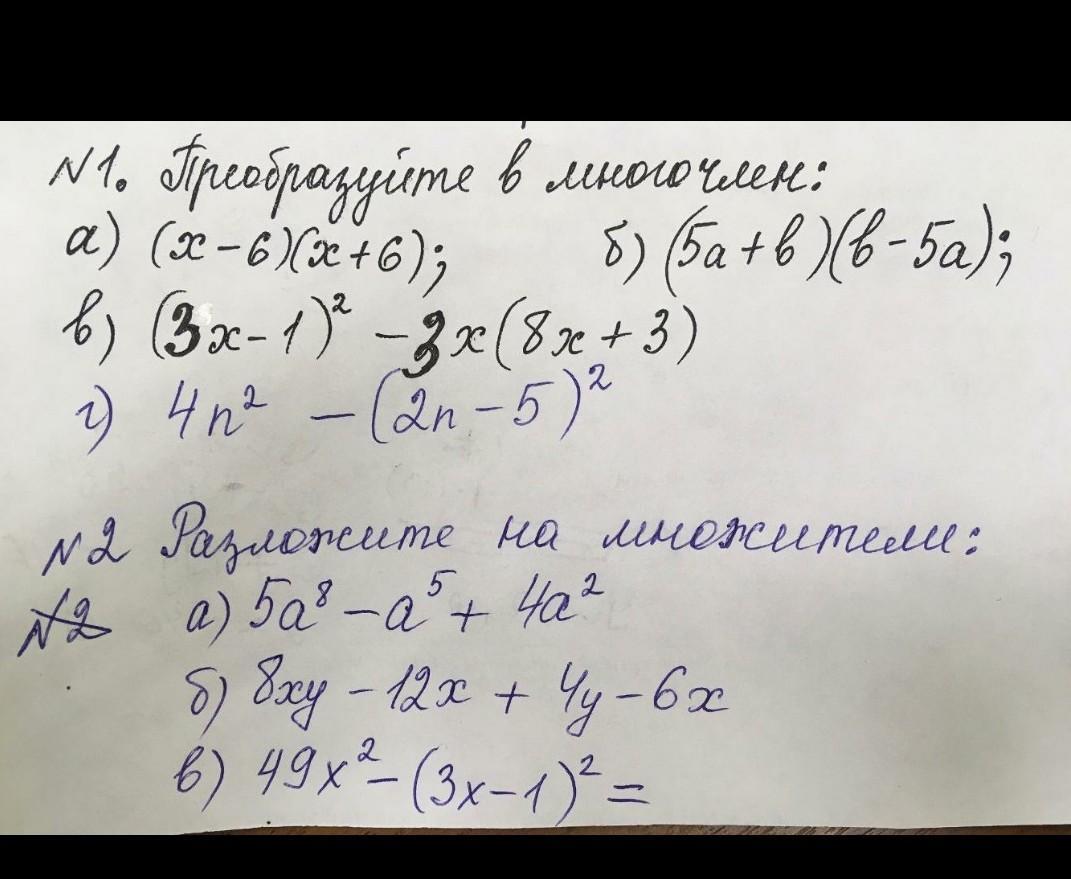 №1. Преобразуйте в многочлен:
а) (x-6)(x+6); б) (5a+b)(b-5a);
в) (3x-1)² -3x(8x+3)
г) 4n² - (2n-5)²
№2 Разложите на множители:
№2 а) 5a⁸ - a⁵ + 4a²
б) 8xy - 12x + 4y - 6x
в) 49x² - (3x-1)² =